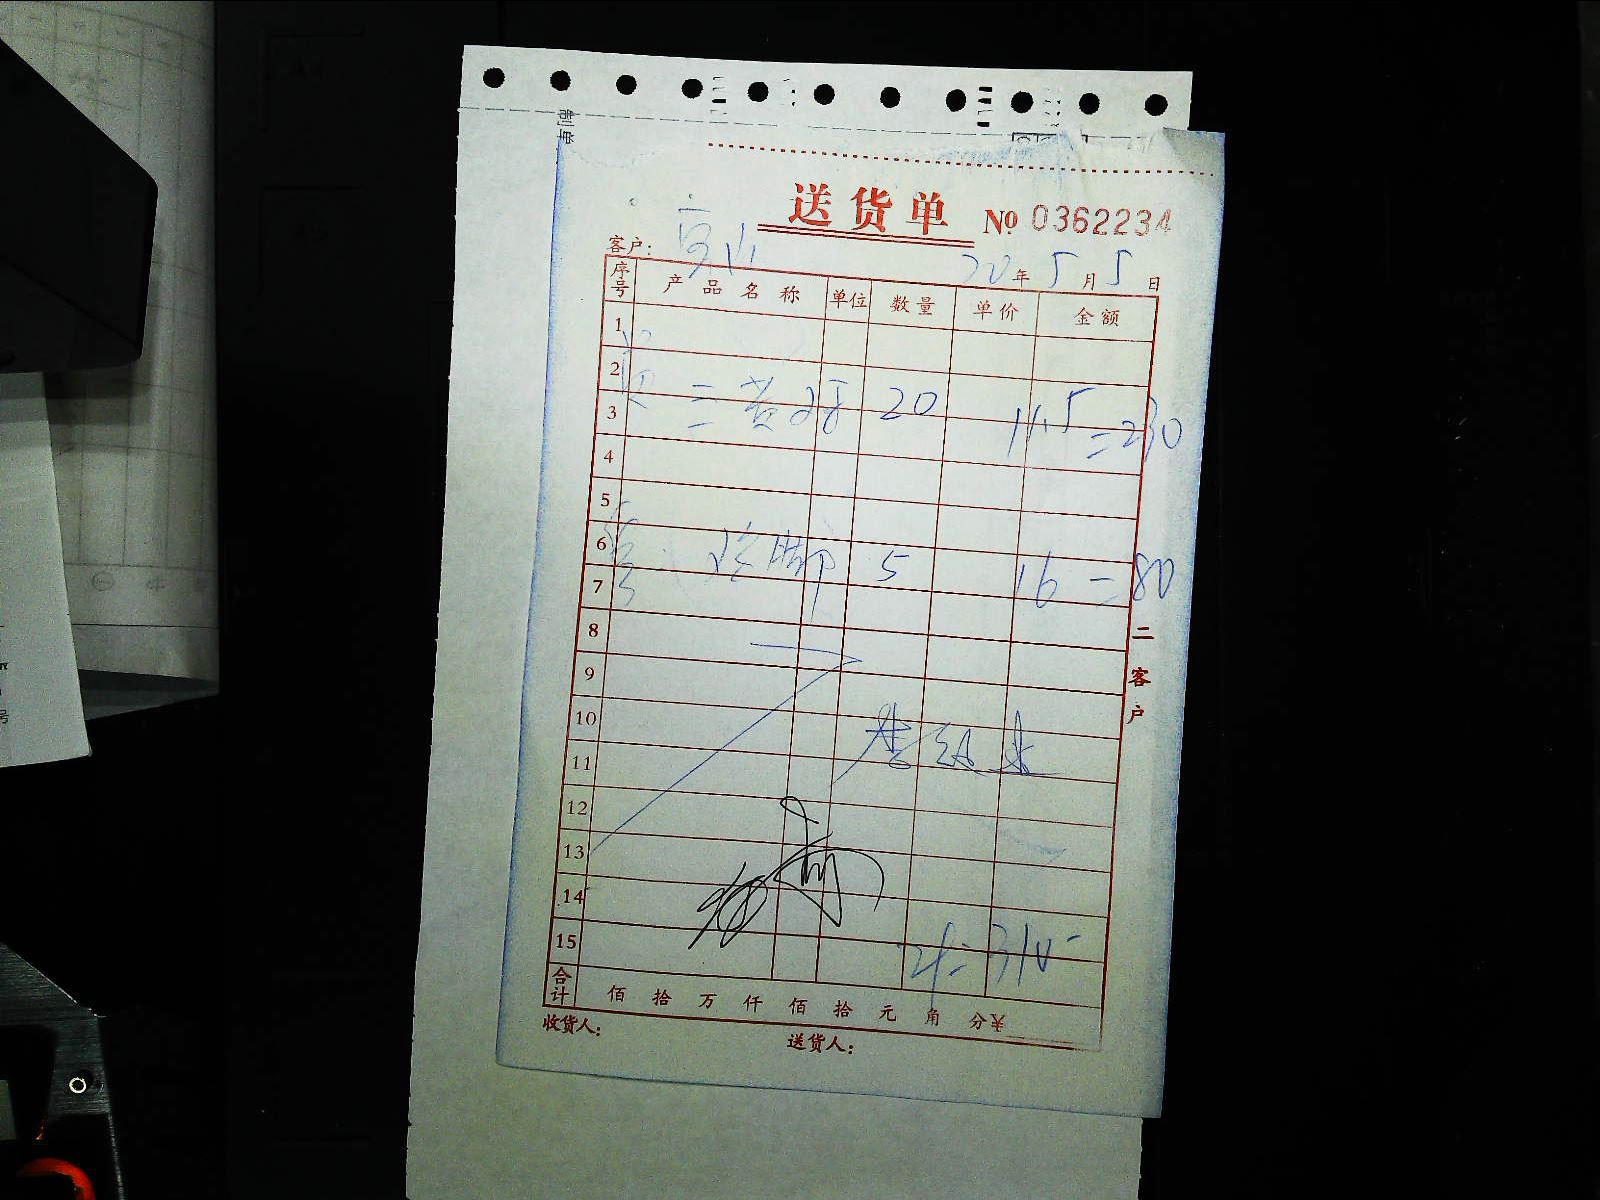 制单
送货单 № 0362234
客户：
20 年 5 月 5 日
序号 产品名称 单位 数量 单价 金额
1
2
三黄 20 11.5 =230
3
4
5
6
5 16 =80
7
二客户
8
9
10
11
12
13
14
15
310
合计 佰 拾 万 仟 佰 拾 元 角 分¥
收货人：
送货人：